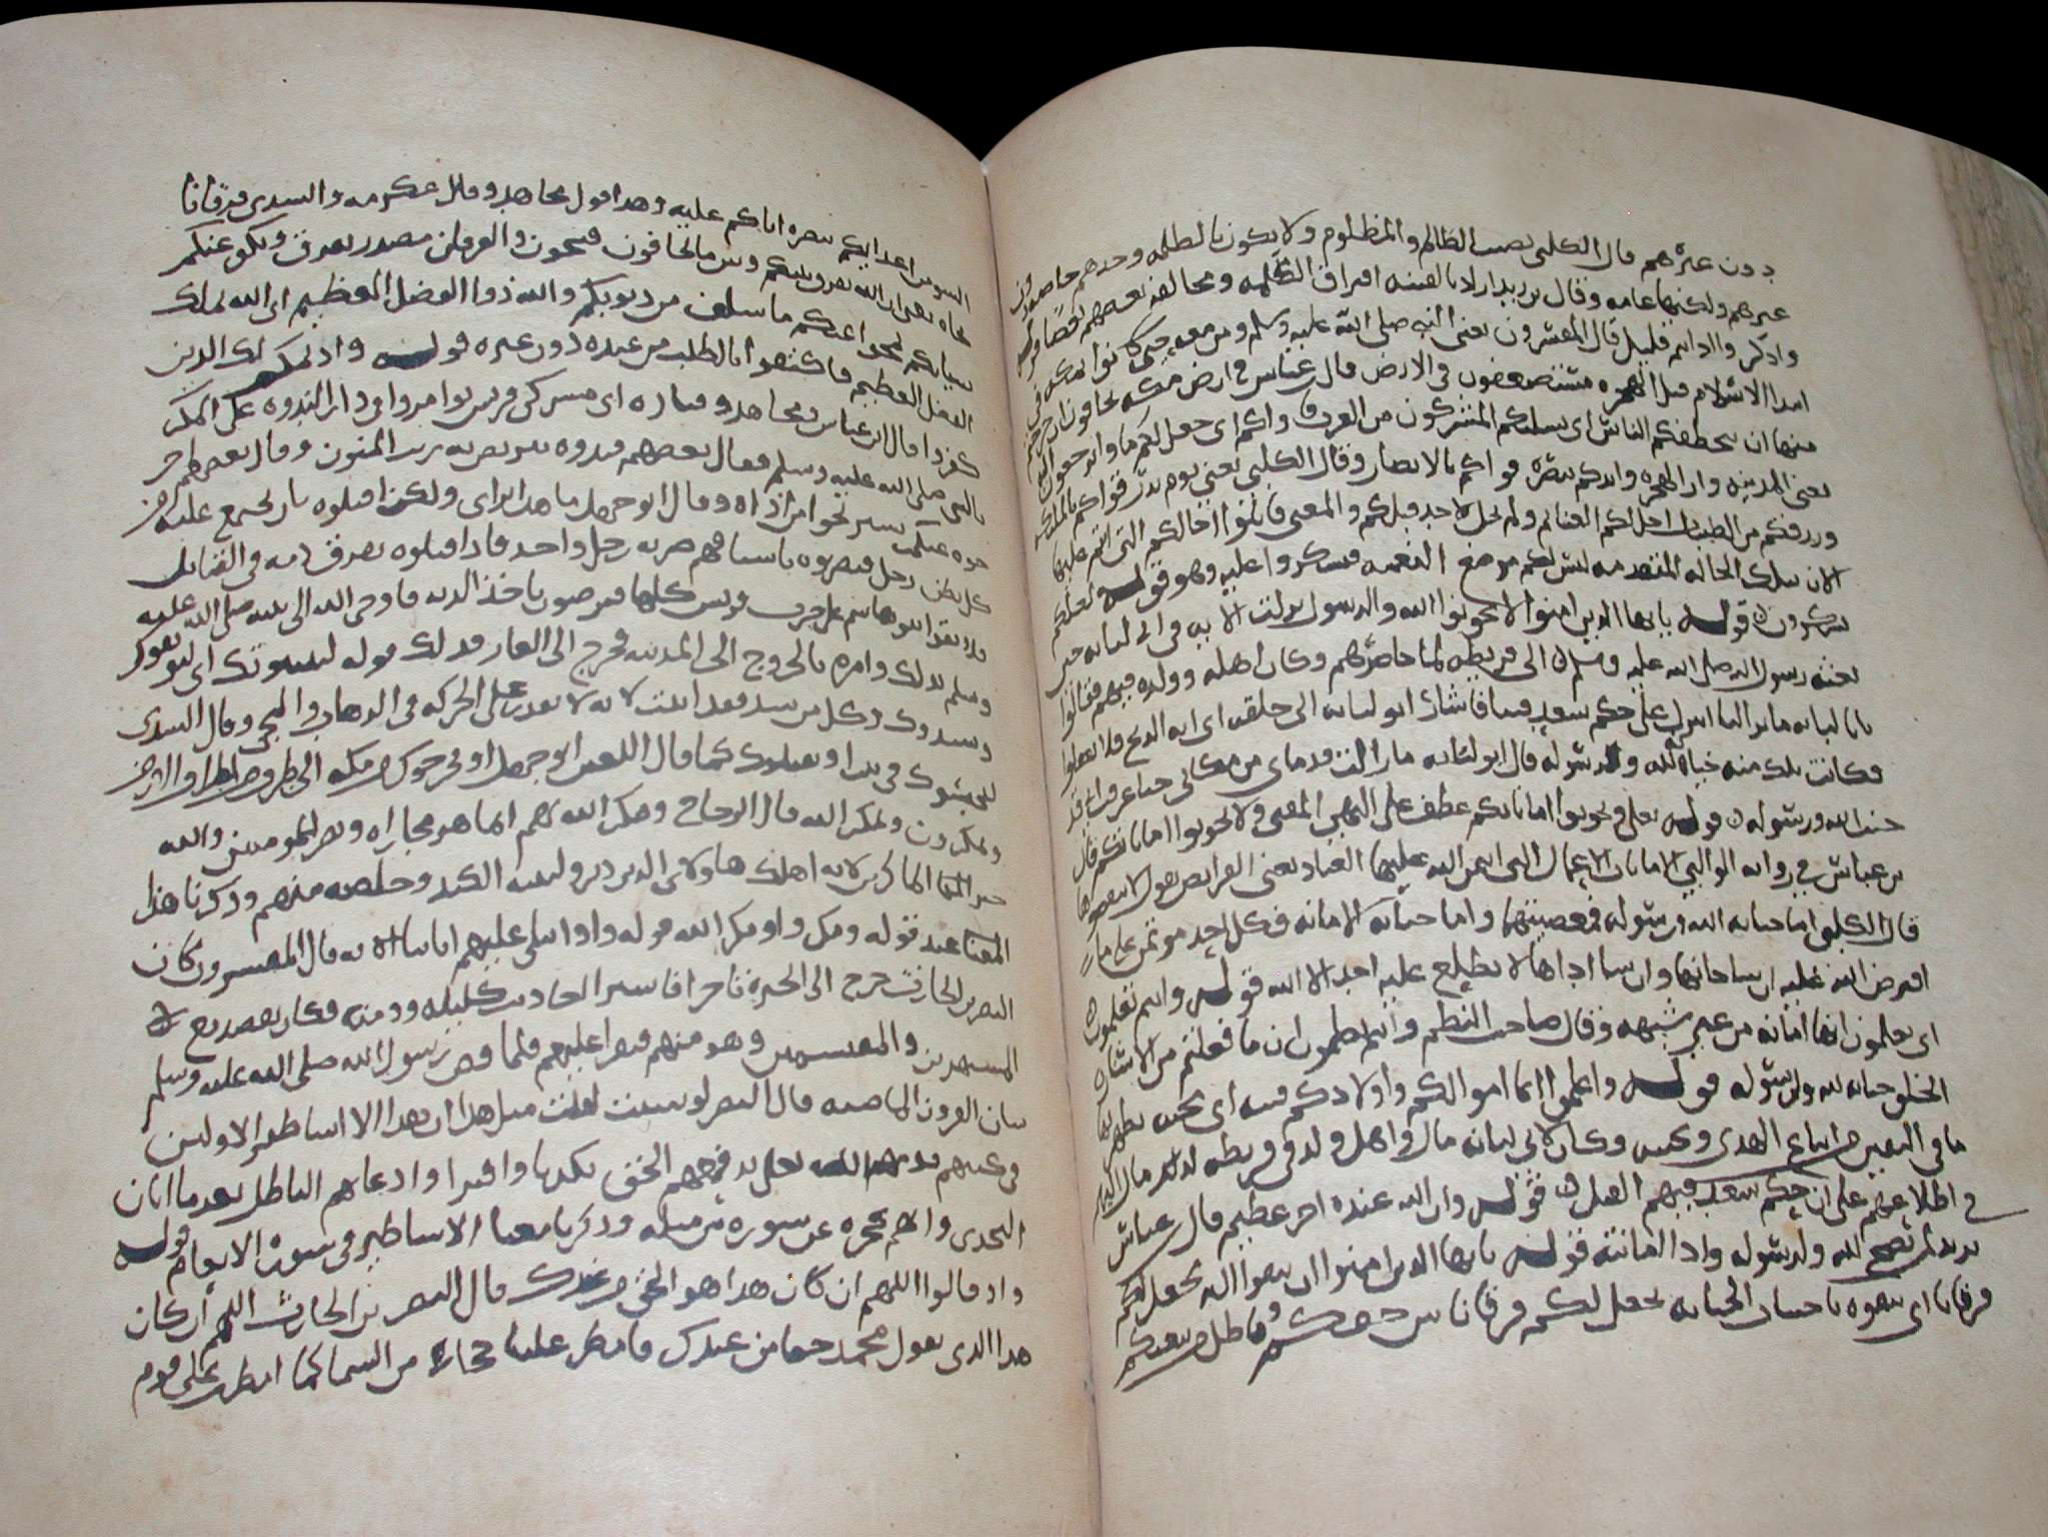 دون غيرهم قال الكلبي تصيب الظالم والمظلوم ولا يكون بالظلمة وحدهم خاصة
غيرهم ولكنها عامه وقال بن زيد اراد بالفتنه افتراق الكلمه ومخالفه بعضهم بعضا
واذكروا اذ انتم قليل قال المفسرون يعني النبي صلى الله عليه وسلم ومن معه حين كانوا بمكه في
ابتدا الاسلام قبل الهجره مستضعفون في الارض قال بن عباس في ارض مكه تخافون
منها ان يتخطفكم الناس اي يسلبكم المشركون من العرب فاواكم اي جعل لكم ماوا ترجعون
يعني المدينه دار الهجره وايدكم بنصره قواكم بالانصار وقال الكلبي يعني يوم بدر قواكم بالملايكه
ورزقكم من الطيبات احل لكم الغنايم ولم تحل لاحد قبلكم والمعنى قابلوا حالكم التي انتم عليها
الان بتلك الحاله المتقدمه ليتبين لكم موضع النعمه فتشكروا عليه وهو قوله لعلكم
تشكرون قوله يايها الذين امنوا لا تخونوا الله والرسول نزلت الايه في ابي لبابه حين
بعثه رسول الله صلى الله عليه وسلم الى قريظه لما حاصرهم وكان اهله وولده فيهم فقالوا
يابا لبابه ما ترا لنا اننزل على حكم سعد فينا فاشار ابو لبابه الى حلقه اي انه الذبح فلا تفعلوا
فكانت تلك منه خيانه لله ولرسوله قال ابو لبابه ما زالت قدماي من مكاني حتى عرفت اني قد
خنت الله ورسوله قوله تعلى وتخونوا اماناتكم عطف على النهي المعنى ولا تخونوا اماناتكم قال
بن عباس في روايه الوالبي الامانات الاعمال التي ايتمن الله عليها العباد يعني الفرايض يقول لا تنقصوها
قال الكلبي اما خيانه الله ورسوله فمعصيتهما واما خيانه الامانه فكل احد موتمن على ما
افترض الله عليه ان شا خانها وان شا اداها لا يطلع عليه احد الا الله قوله وانتم تعلمون
اي تعلمون انها امانه من غير شبهه وقال صاحب النظم وانتم تعلمون ان ما فعلتم من الاشاره
الى الحلق خيانه لله ولرسوله قوله واعلموا انما اموالكم واولادكم فتنه اي محنه يظهر بها
ما في النفس من اتباع الهوى وتجنبه وكان لابي لبابه مال واهل وولد في قريظه لذلك مال اليهم
في اطلاعهم على ان حكم سعد فيهم القتل قوله وان الله عنده اجر عظيم قال بن عباس
يريد لمن نصح لله ولرسوله وادا امانته قوله يايها الذين امنوا ان تتقوا الله يجعل لكم
فرقانا اي تتقوه باجتناب الخيانه يجعل لكم فرقانا بين حقكم وباطل من يبغيكم
السو من اعدايكم بنصره اياكم عليه وهذا قول مجاهد وقال عكرمه والسدي فرقانا
نجاه يعني ان الله يفرق بينكم وبين ما تخافون فتنجون والفرقان مصدر يفرق ويكفر عنكم
سياتكم يمحوا عنكم ما سلف من ذنوبكم والله ذوا الفضل العظيم اي الله يملك
الفضل العظيم فاكتفوا بالطلب من عنده دون غيره قوله واذ يمكر بك الذين
كفروا قال ابن عباس ومجاهد وقتاده اي مشركي قريش توامروا في دار الندوه على المكر
بالنبي صلى الله عليه وسلم فقال بعضهم قيدوه نتربص به ريب المنون وقال بعضهم
اخرجوه عنكم تستريحوا من اذاه وقال ابو جهل ما هذا براي ولكن اقتلوه بان يجتمع عليه من
كل بطن رجل فيضربوه باسيافهم ضربه رجل واحد فاذا قتلوه تفرق دمه في القبايل
فلا يقوا بنو هاشم على حرب قريش كلها فيرضون باخذ الديه فاوحى الله الى نبيه صلى الله عليه
وسلم بذلك وامره بالخروج الى المدينه فخرج الى الغار فذلك قوله ليثبتوك اي ليوثقوك
ويشدوك وكل من شد فقد اثبت لانه لا يقدر على الحركه في الذهاب والمجي وقال السدي
ليحبسوك في بيت او يقتلوك كما قال اللعين ابو جهل او يخرجوك من مكه الى طرف من اطراف الارض
ويمكرون ويمكر الله قال الزجاج ومكر الله بهم انما هو مجازاه ونصر للمومنين والله
خير الماكرين لانه اهلك هاولاي الذين دبروا لنبيه الكيد وخلصه منهم وذكرنا هذا
المعنا عند قوله ومكروا ومكر الله قوله واذا تتلى عليهم اياتنا الايه قال المفسرون كان
النضر بن الحارث خرج الى الحيره تاجرا فاشترا احاديث كليله ودمنه فكان يقعد مع
المستهزين والمقتسمين وهو منهم فيقرا عليهم فلما قص رسول الله صلى الله عليه وسلم
شان القرون الماضيه قال النضر لو شيت لقلت مثل هذا ان هذا الا اساطير الاولين
التحدي وانهم عجزه عن سوره من مثله وذكرنا معنا الاساطير في سوره الانعام قوله
واذ قالوا اللهم ان كان هذا هو الحق من عندك قال النضر بن الحارث اللهم ان كان
هذا الذي يقول محمد حقا من عندك فامطر علينا حجاره من السما كما امطرت على قوم